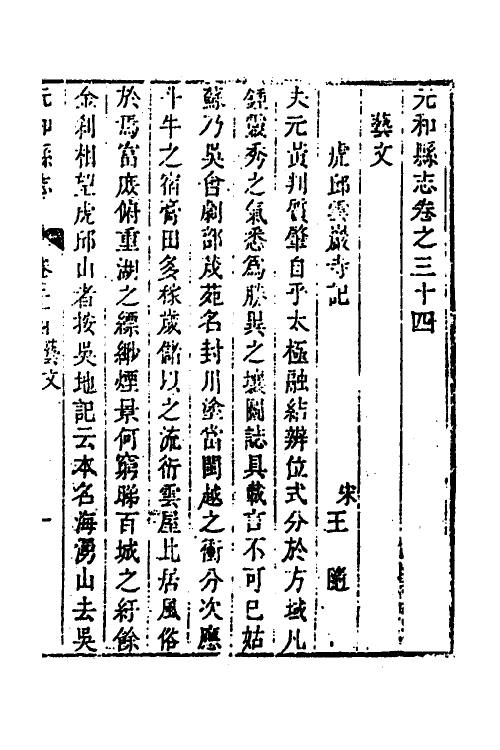 元和縣志卷之三十四
藝文
虎邱雲巖寺記
宋王隨
夫元黃判質肇自乎太極融結辨位式分於方域凡
鍾靈秀之氣悉爲勝異之壤圖誌具載言不可已姑
蘇乃吳會劇郡茂苑名封川塗當閩越之衝分次應
斗牛之宿膏田多稼歲儲以之流衍雲屋比居風俗
於焉富庶俯重湖之縹緲煙景何窮睇百城之紆餘
金刹相望虎邱山者按吳地記云本名海湧山去吳
元和縣志 卷三十四藝文 一